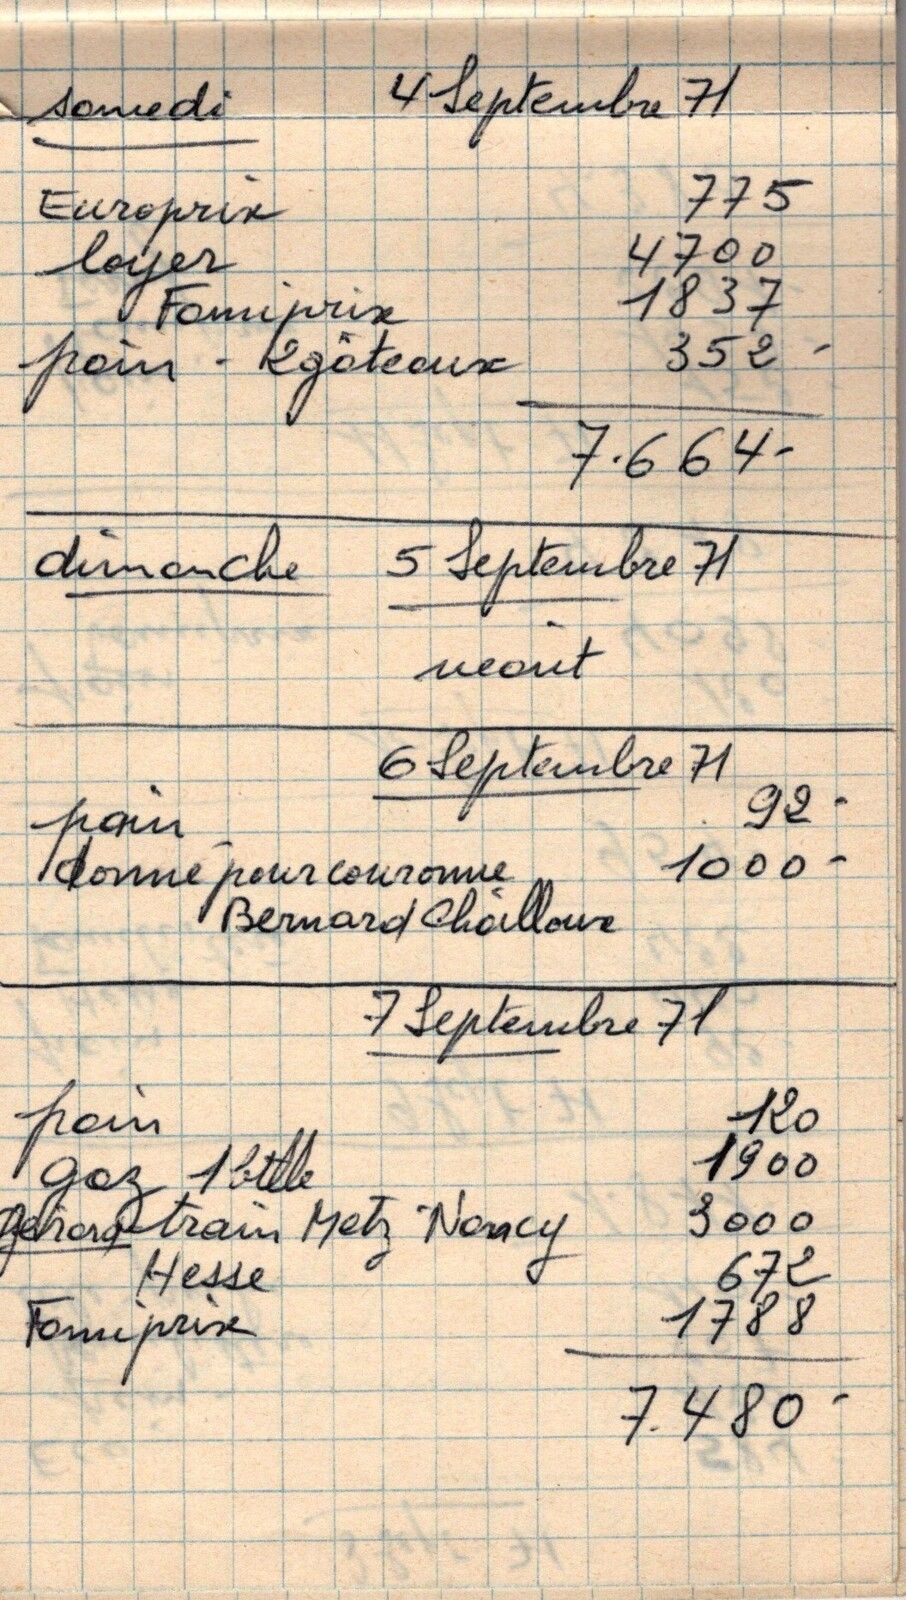 samedi 4 Septembre 71
Europrix 775
loyer 4700
Famiprix 1837
pain - 2 gâteaux 352 -
7.664-
dimanche 5 Septembre 71
néant
6 Septembre 71
pain 92-
donné pour couronne 1000-
Bernard Chailloux
7 Septembre 71
pain 120
gaz 1 btlle 1900
Gérard train Metz Nancy 3000
Hesse 672
Famiprix 1788
7.480-